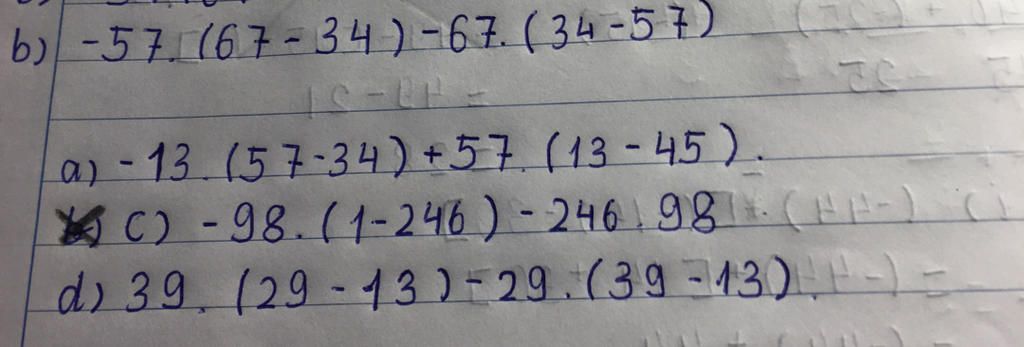 b) -57.(67-34)-67.(34-57)
a) -13.(57-34)+57.(13-45).
c) -98.(1-246)-246.98
d) 39.(29-13)-29.(39-13).